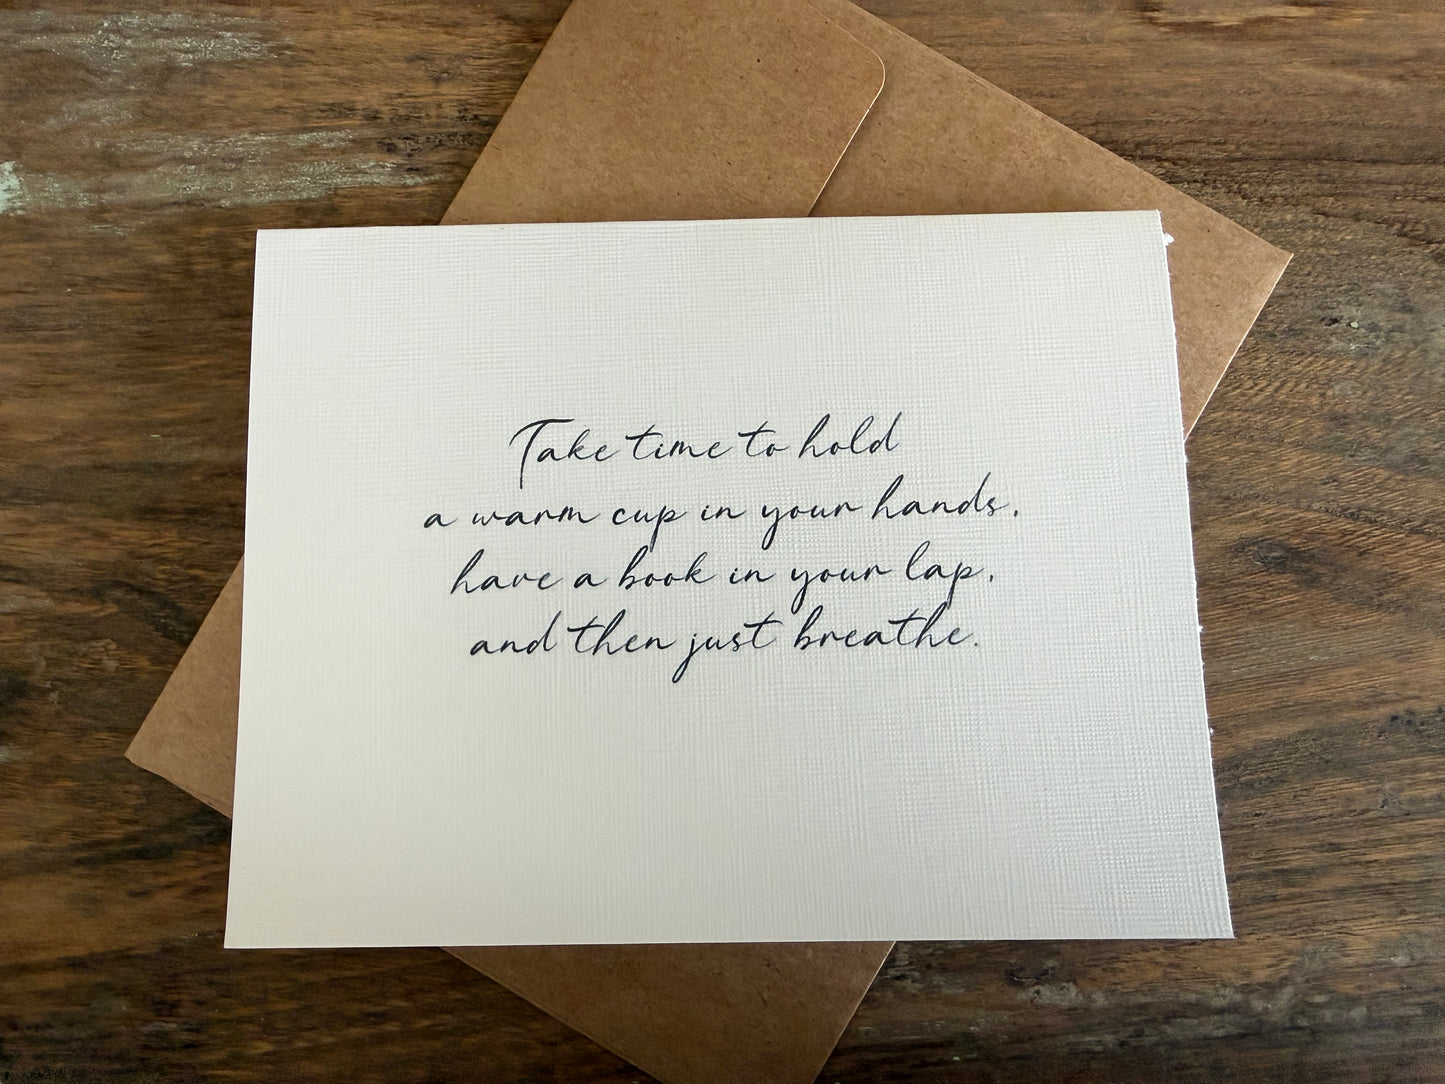 Take time to hold
a warm cup in your hands,
have a book in your lap,
and then just breathe.